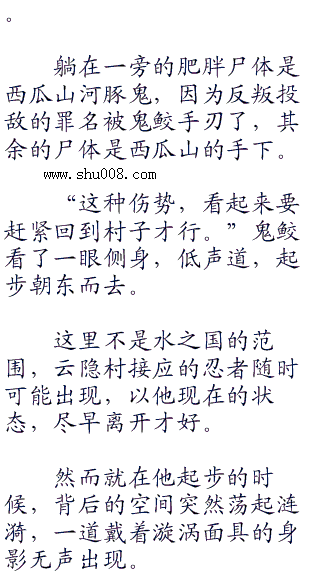 。
躺在一旁的肥胖尸体是
西瓜山河豚鬼，因为反叛投
敌的罪名被鬼鲛手刃了，其
余的尸体是西瓜山的手下。
www.shu008.com
“这种伤势，看起来要
赶紧回到村子才行。”鬼鲛
看了一眼侧身，低声道，起
步朝东而去。
这里不是水之国的范
围，云隐村接应的忍者随时
可能出现，以他现在的状
态，尽早离开才好。
然而就在他起步的时
候，背后的空间突然荡起涟
漪，一道戴着漩涡面具的身
影无声出现。